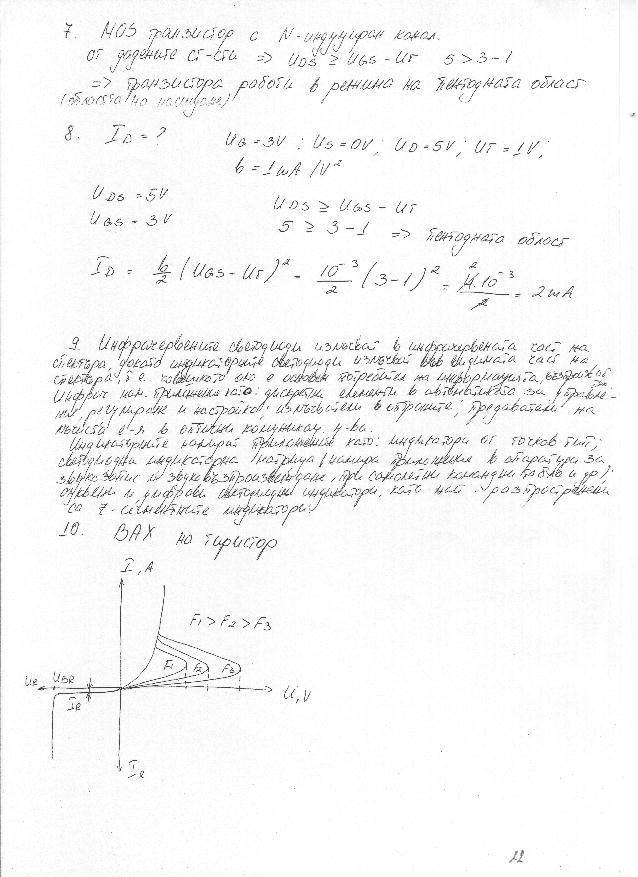 7. MOS транзистор с N-индуциран канал.
от дадените ст-сти => UDS ≥ UGS - UT 5 > 3 - 1
=> Транзистора работи в режима на пентодната област
(областта на насищане)
8. ID = ? UG = 3V ; US = 0V ; UD = 5V ; UT = 1V ;
b = 1 mA/V²
UDS = 5V UDS ≥ UGS - UT
UGS = 3V 5 ≥ 3 - 1 => пентодната област
ID = b/2 (UGS - UT)² = 10⁻³/2 (3 - 1)² = 4.10⁻³/2 = 2 mA
9. Инфрачервените светодиоди излъчват в инфрачервената част на
спектъра, докато индикаторните светодиоди излъчват във видимата част на
спектъра, т.е. човешкото око е основен потребител на информацията,
Инфрач. нам. приложение като: дискретни елементи в автоматиката за управле-
ние, регулиране и настройка; излъчватели в предаватели на
в оптични комуникац. у-ва.
Индикаторните намират приложение като: индикатори от точков тип;
светодиодни индикаторна матрица /намира приложение в апаратура за
звукозапис и звуковъзпроизвеждане, при самолетни командни табла и др./;
буквени и цифрови светодиодни индикатори, като най-разпространени
са 7-сегментните индикатори.
10. ВАХ на тиристор
I, A
F1 > F2 > F3
F1 F2 F3
UR UBR
U, V
IR
IR
11